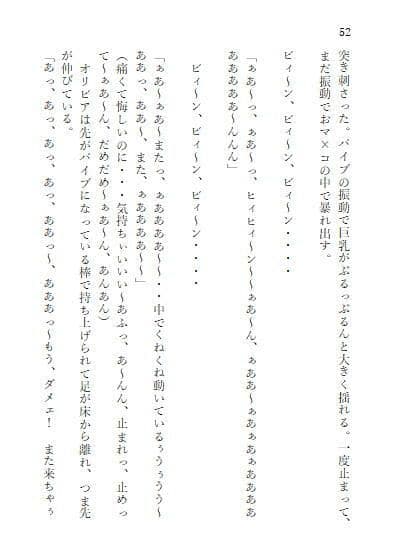 52
突き刺さった。バイブの振動で巨乳がぶるっぶるんと大きく揺れる。一度止まって、
まだ振動でおマ×コの中で暴れ出す。
ビィ〜ン、ビィ〜ン、ビィ〜ン・・・・
「ぁあ〜っ、ぁあ〜っ、ヒィヒィ〜ン〜〜ぁあ〜ん、ぁああ〜ぁあぁあぁああああ
ああああああ〜んんん」
ビィ〜ン、ビィ〜ン、ビィ〜ン・・・・
「ぁあ〜ぁあ〜またっ、ぁああああ〜〜・・中でくねくね動いているぅうぅうう〜
ああっ、ああ〜、また、ぁああああ〜〜」
(痛くて悔しいのに・・・気持ちぃいいい〜あふっ、あ〜んん、止まれっ、止めっ
て〜ぁあ〜ん、だめだめ〜ぁあ〜ん、あんあん)
オリビアは先がバイブになっている棒で持ち上げられて足が床から離れ、つま先
が伸びている。
「あっ、あっ、あっ、あっ、ああっ〜、あああっ〜もう、ダメェ! また来ちゃぅ